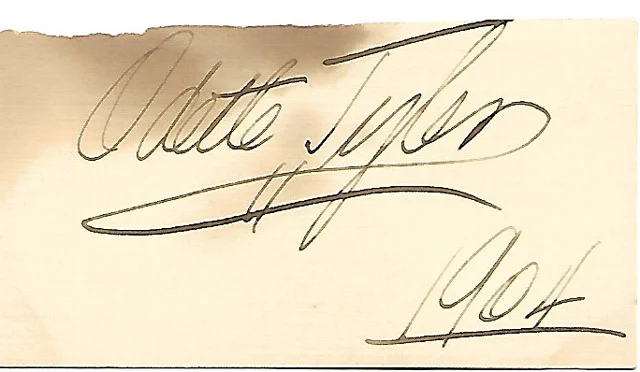 Odette Tyler
1904